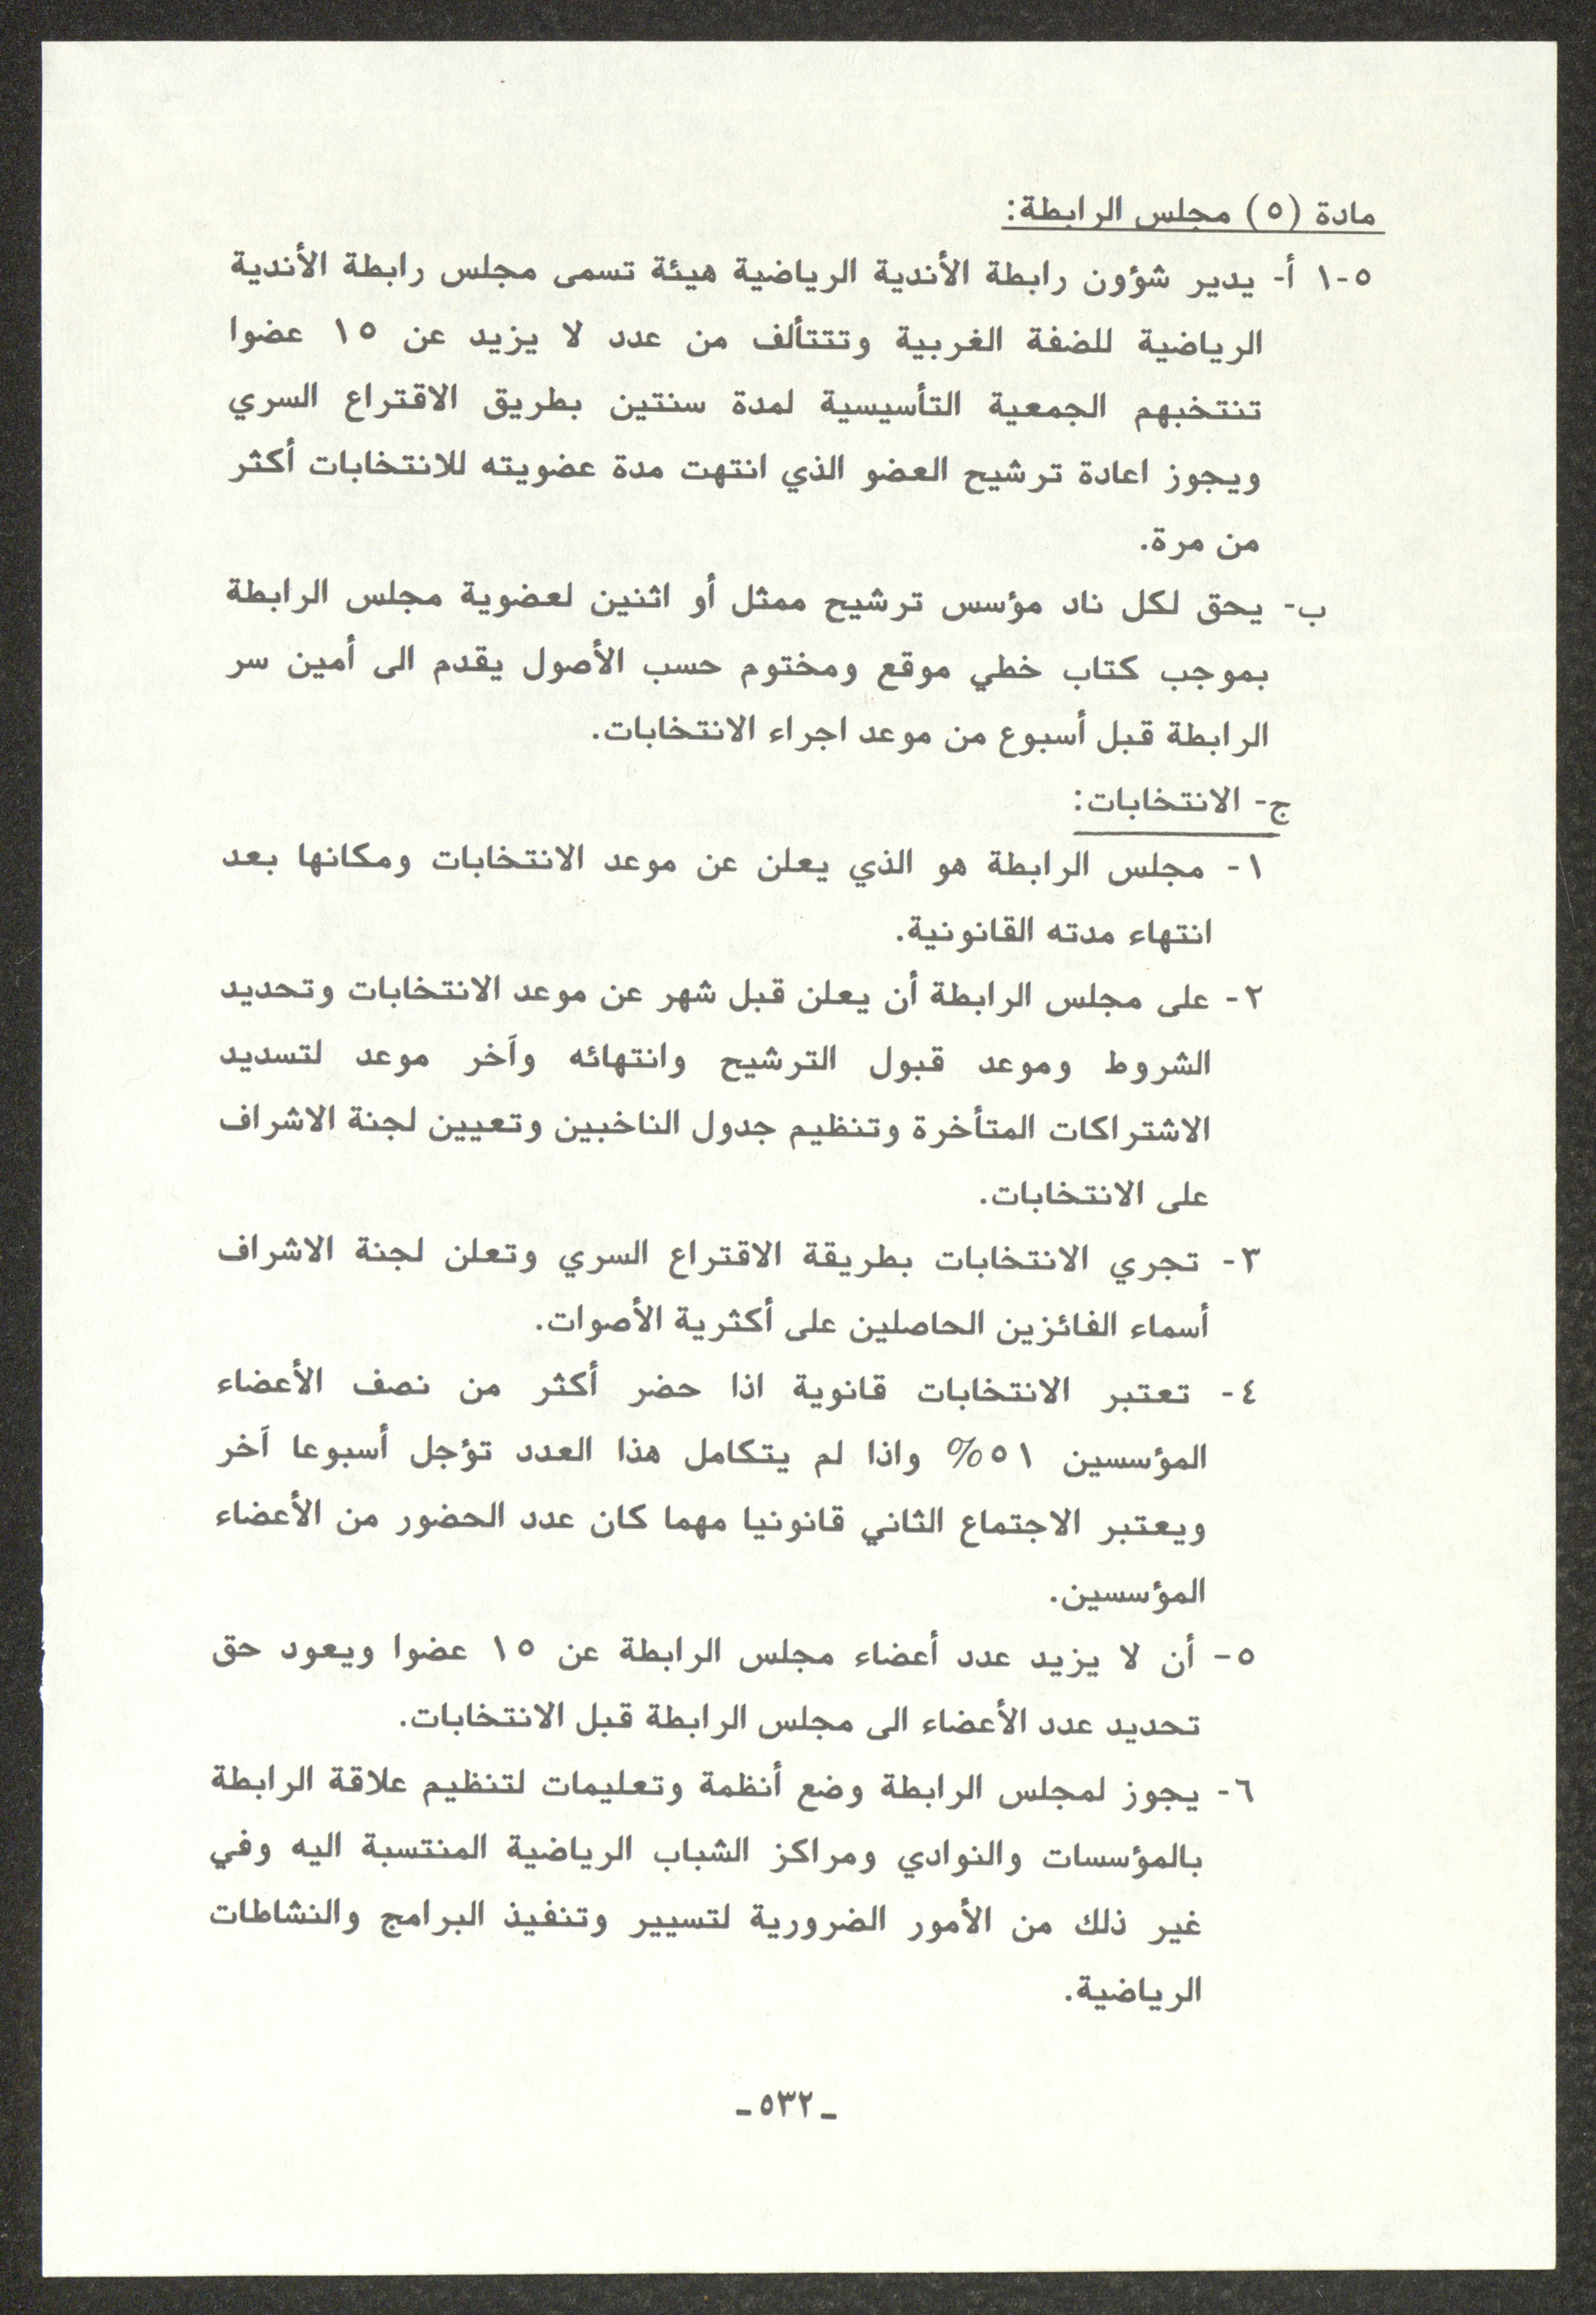 مادة (٥) مجلس الرابطة:
٥-١ أ- يدير شؤون رابطة الأندية الرياضية هيئة تسمى مجلس رابطة الأندية
الرياضية للضفة الغربية وتتتألف من عدد لا يزيد عن ١٥ عضوا
تنتخبهم الجمعية التأسيسية لمدة سنتين بطريق الاقتراع السري
ويجوز اعادة ترشيح العضو الذي انتهت مدة عضويته للانتخابات أكثر
من مرة.
ب- يحق لكل ناد مؤسس ترشيح ممثل أو اثنين لعضوية مجلس الرابطة
بموجب كتاب خطي موقع ومختوم حسب الأصول يقدم الى أمين سر
الرابطة قبل أسبوع من موعد اجراء الانتخابات.
ج- الانتخابات:
١- مجلس الرابطة هو الذي يعلن عن موعد الانتخابات ومكانها بعد
انتهاء مدته القانونية.
٢- على مجلس الرابطة أن يعلن قبل شهر عن موعد الانتخابات وتحديد
الشروط وموعد قبول الترشيح وانتهائه وآخر موعد لتسديد
الاشتراكات المتأخرة وتنظيم جدول الناخبين وتعيين لجنة الاشراف
على الانتخابات.
٣- تجري الانتخابات بطريقة الاقتراع السري وتعلن لجنة الاشراف
أسماء الفائزين الحاصلين على أكثرية الأصوات.
٤- تعتبر الانتخابات قانوية اذا حضر أكثر من نصف الأعضاء
المؤسسين ٥١% واذا لم يتكامل هذا العدد تؤجل أسبوعا آخر
ويعتبر الاجتماع الثاني قانونيا مهما كان عدد الحضور من الأعضاء
المؤسسين.
٥- أن لا يزيد عدد أعضاء مجلس الرابطة عن ١٥ عضوا ويعود حق
تحديد عدد الأعضاء الى مجلس الرابطة قبل الانتخابات.
٦- يجوز لمجلس الرابطة وضع أنظمة وتعليمات لتنظيم علاقة الرابطة
بالمؤسسات والنوادي ومراكز الشباب الرياضية المنتسبة اليه وفي
غير ذلك من الأمور الضرورية لتسيير وتنفيذ البرامج والنشاطات
الرياضية.
ـ٥٣٢ـ